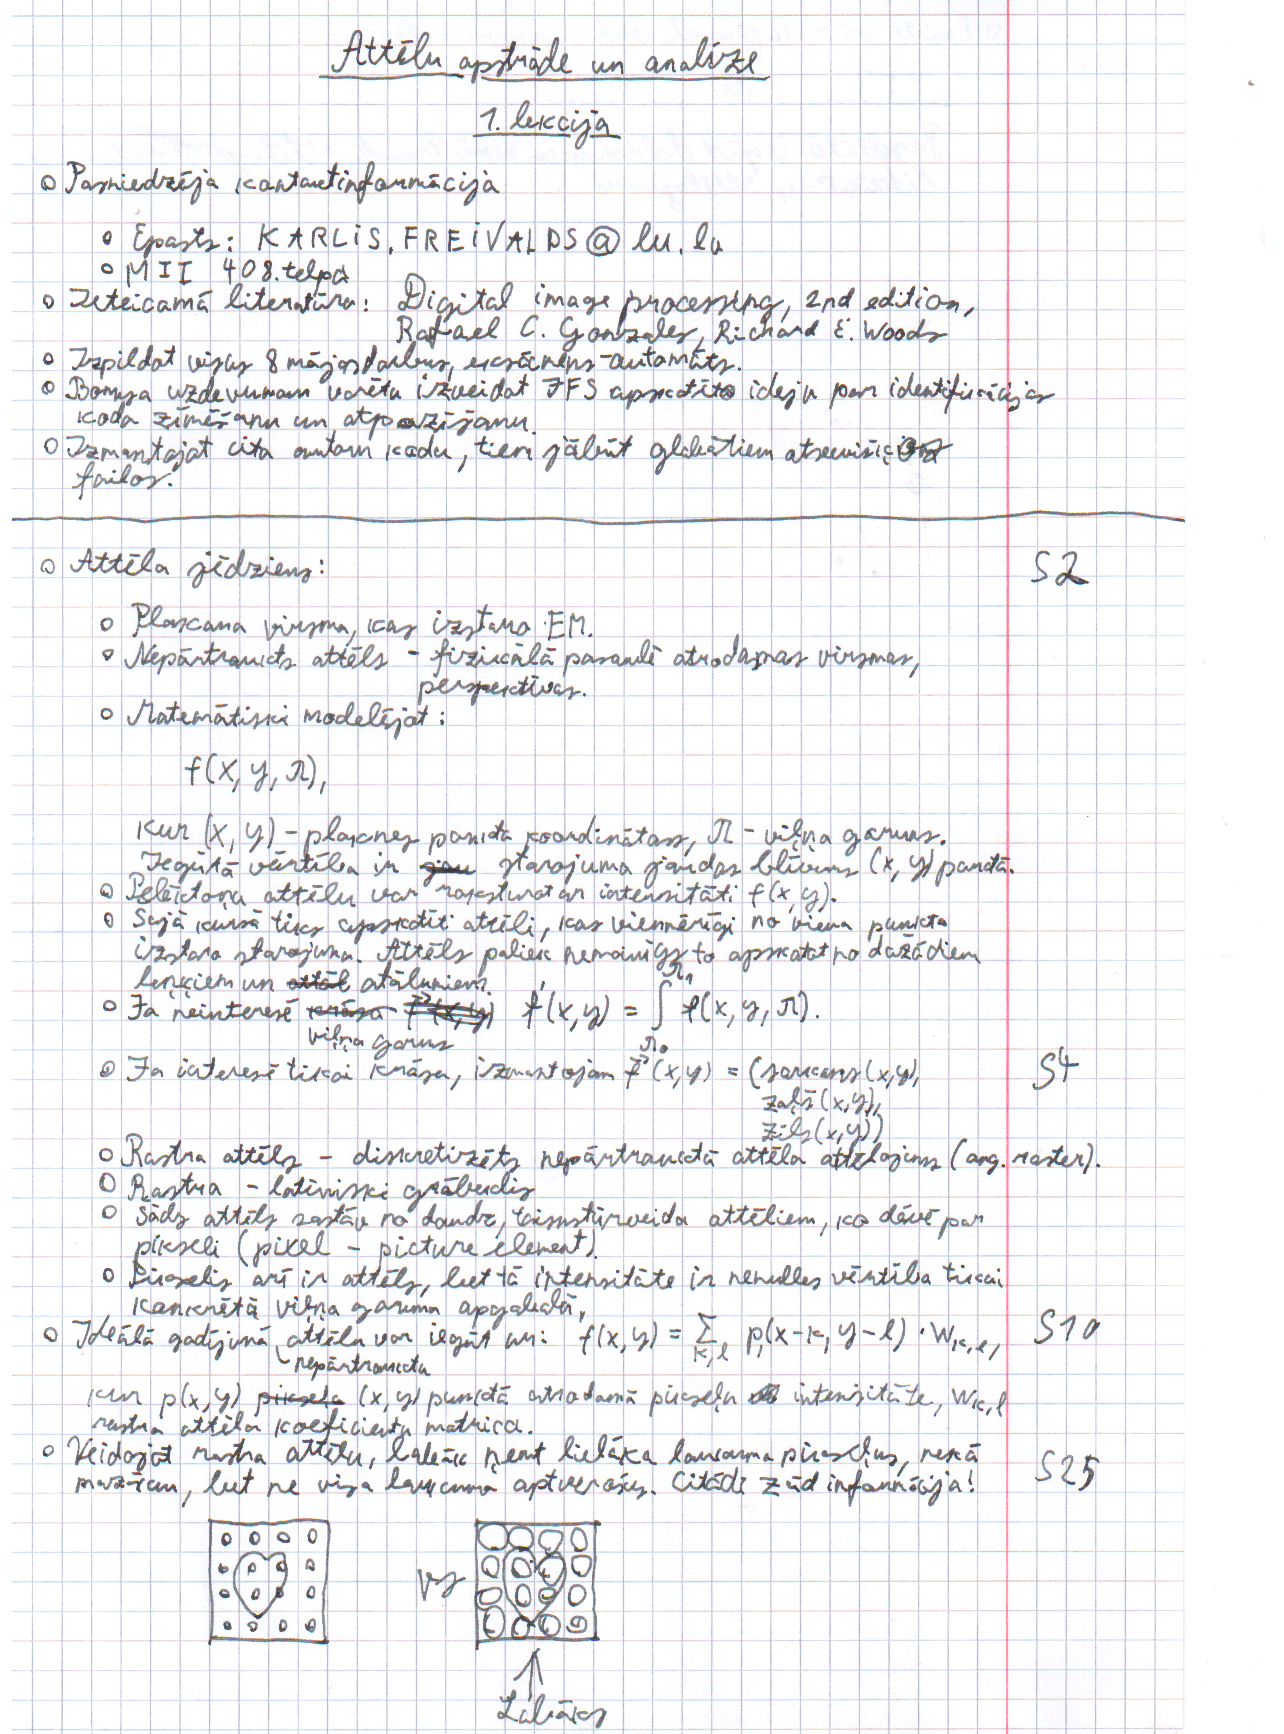 Attēlu apstrāde un analīze
1. lekcija
Pasniedzēja kontaktinformācija
Epasts: KARLIS.FREIVALDS@lu.lv
MII 408.telpa
Ieteicamā literatūra: Digital image processing, 2nd edition,
Rafael C. Gonzales, Richard E. Woods
Izpildot visus 8 mājasdarbus, eksāmens-automāts.
Bonusa uzdevumam varētu izveidot JFS apskatīto ideju par identifikācijas
koda zīmēšanu un atpazīšanu.
Izmantojot cita autora kodu, tiem jābūt glabātiem atsevišķos
failos.
Attēla jēdziens: S2
Plakana virsma, kas izstaro EM.
Nepārtraukts attēls - fizikālā pasaulē atrodamas virsmas,
perspektīvas.
Matemātiski modelējot:
f(x, y, λ),
kur (x, y) - plaknes punkta koordinātas, λ - viļņa garums.
Iegūtā vērtība ir starojuma jaudas blīvums (x, y) punktā.
Pelēktoņu attēlu var raksturot ar intensitāti f(x, y).
Šajā kursā tiks apskatīti attēli, kas vienmērīgi no viena punkta
izstaro starojumu. Attēls paliek nemainīgs to apskatot no dažādiem
leņķiem un attālumiem.
Ja neinteresē f(x, y) = ∫ f(x, y, λ). λ₁
viļņa garums λ₀
Ja interesē tikai krāsa, izmantojam f⃗(x, y) = (sarkans(x, y), S4
zaļš(x, y),
zils(x, y))
Rastra attēls - diskretizēts nepārtrauktā attēla attēlojums (ang. raster).
Rastra - latīniski grābeklis
Šāds attēls sastāv no daudz, taisnstūrveida attēliem, ko dēvē par
pikseli (pixel - picture element)
Pikselis arī ir attēls, bet tā intensitāte ir nenulles vērtība tikai
konkrētā viļņa garuma apgabalā,
Ideālā gadījumā attēlu var iegūt ar: f(x, y) = Σ p(x-k, y-l) · W k,l, S10
nepārtrauktu k, l
kur p(x, y) (x, y) punktā atrodamā pikseļa intensitāte, W k,l
rastra attēla koeficientu matrica.
Veidojot rastra attēlu, labāk ņemt lielāka laukuma pikseļus, nekā S25
mazākus, bet ne visa laukuma aptverošus. Citādi zūd informācija!
vs
Labāks